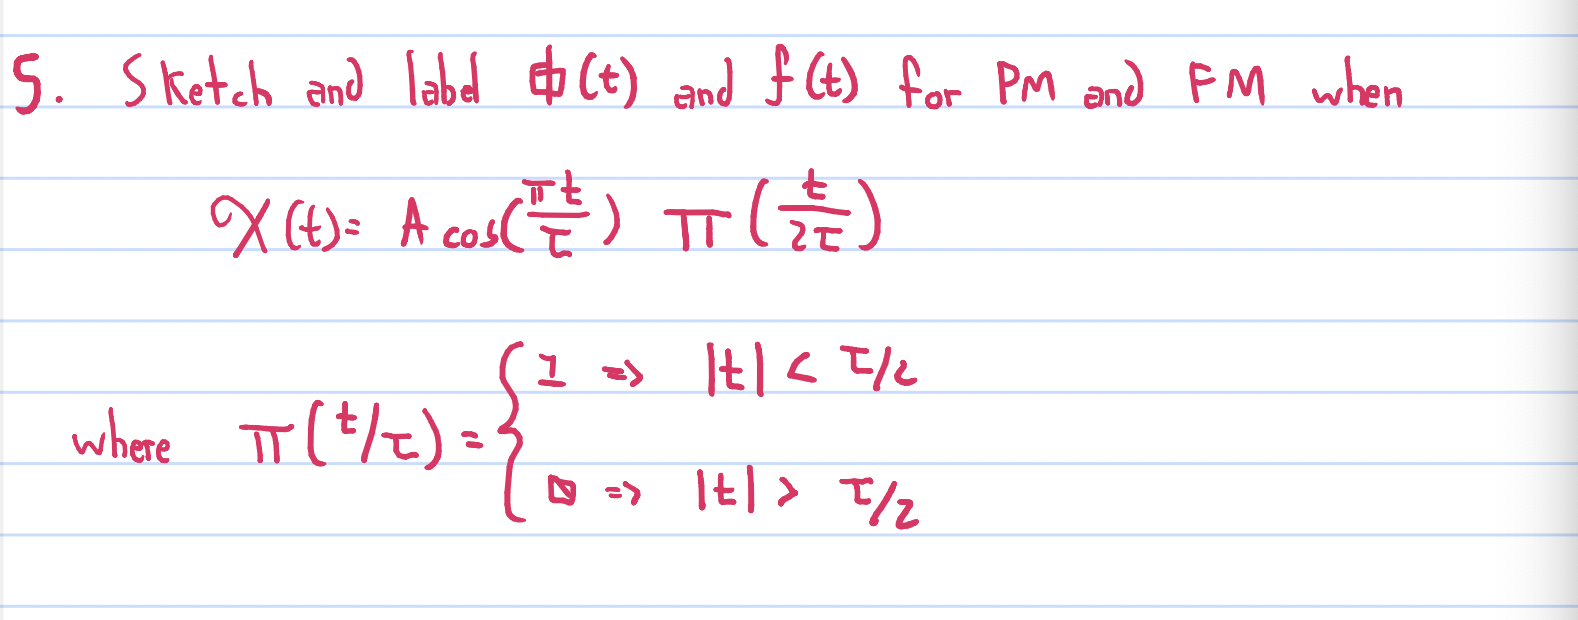 5. Sketch and label ϕ(t) and f(t) for PM and FM when
x(t)= A cos(πt/τ) π(t/2τ)
where π(t/τ) = { 1 => |t| < τ/2
0 => |t| > τ/2